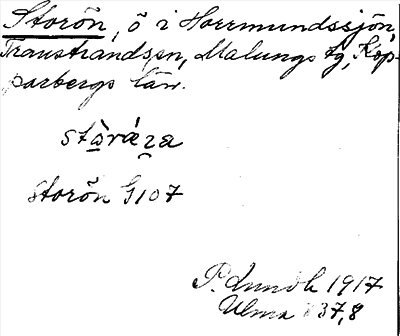 Storön, ö i Horrmundssjön,
Transtrands sn, Malungs tg, Kop-
parbergs län.
Storön G107
P. Lundh 1917
Ulma 37,8